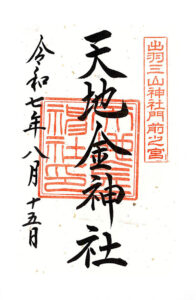 出羽三山神社門前之宮
天地金神社
令和七年八月十五日